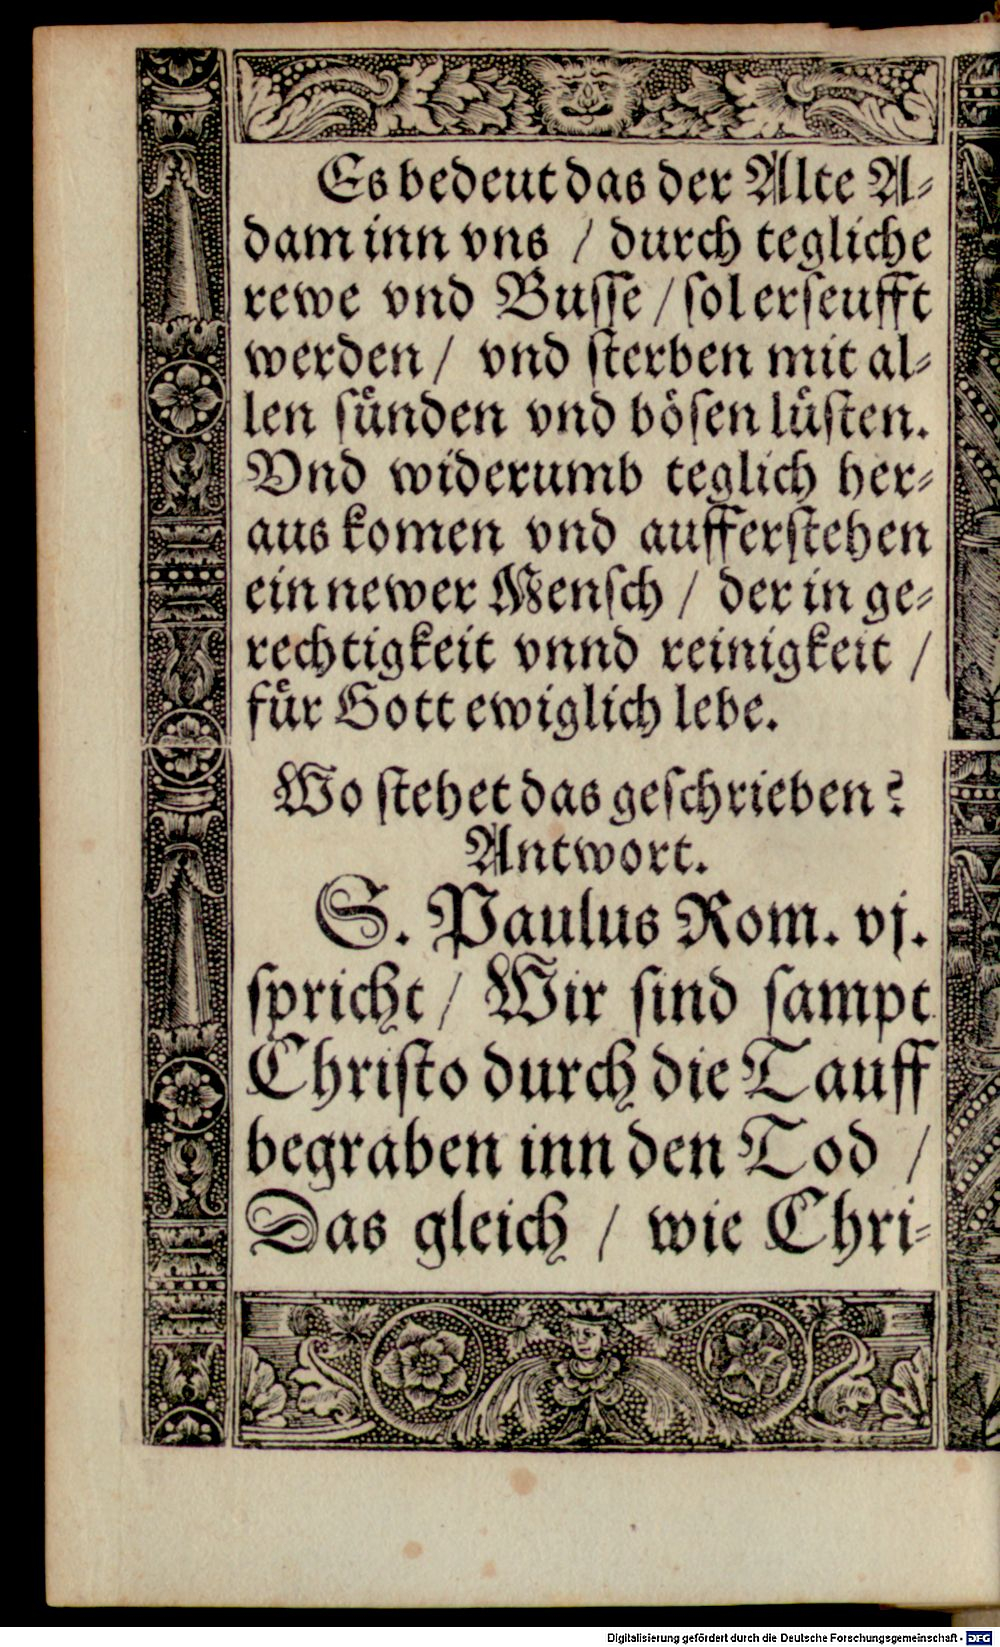 Es bedeut das der Alte A⸗
dam inn vns / durch tegliche
rewe vnd Busſe / ſol erſeufft
werden / vnd ſterben mit al⸗
len ſuͤnden vnd boͤſen luͤſten.
Vnd widerumb teglich her⸗
aus komen vnd aufferſtehen
ein newer Menſch / der in ge⸗
rechtigkeit vnnd reinigkeit /
fuͤr Gott ewiglich lebe.
Wo ſtehet das geſchrieben?
Antwort.
S. Paulus Rom. vj.
ſpricht / Wir ſind ſampt
Chriſto durch die Tauff
begraben inn den Tod /
Das gleich / wie Chri⸗
Digitalisierung gefördert durch die Deutsche Forschungsgemeinschaft - DFG